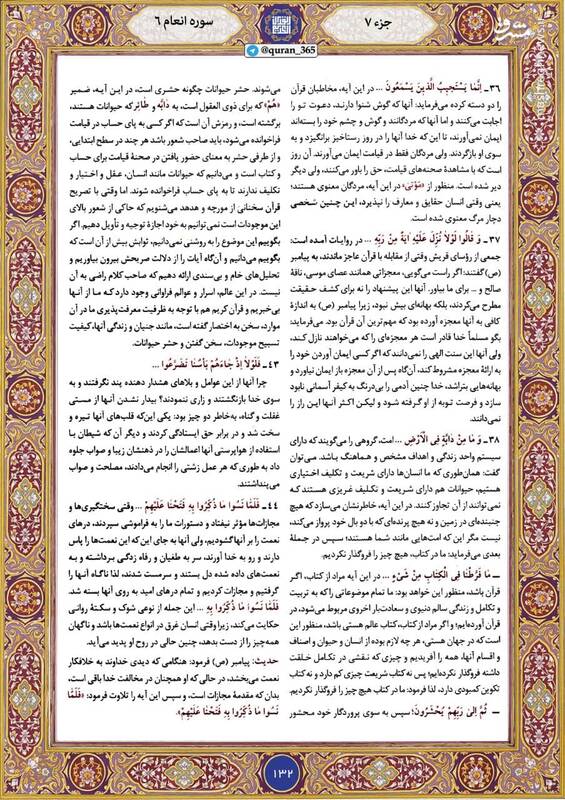 جزء ۷
سوره انعام ۶
@quran_365
مشرق
۳۶ـ إِنَّمَا يَسْتَجِيبُ الَّذِينَ يَسْمَعُونَ ... در این آیه، مخاطبان قرآن
را دو دسته کرده می‌فرماید: آنها که گوش شنوا دارند، دعوت تو را
اجابت می‌کنند و اما آنها که مردگانند و گوش و چشم خود را بسته‌اند
ایمان نمی‌آورند، تا این که خدا آنها را در روز رستاخیز برانگیزد و به
سوی او بازگردند. ولی مردگان فقط در قیامت ایمان می‌آورند. آن روز
است که با مشاهدهٔ صحنه‌های قیامت، حق را باور می‌کنند، ولی دیگر
دیر شده است. منظور از «مَوْتىٰ» در این آیه، مردگان معنوی هستند؛
یعنی وقتی انسان حقایق و معارف را نپذیرد، این چنین شخصی
دچار مرگ معنوی شده است.
۳۷ـ وَ قَالُوا لَوْلَا نُزِّلَ عَلَيْهِ آيَةٌ مِنْ رَبِّهِ ... در روایات آمده است:
جمعی از رؤسای قریش وقتی از مقابله با قرآن عاجز ماندند، به پیامبر
(ص) گفتند: اگر راست می‌گویی، معجزاتی همانند عصای موسی، ناقهٔ
صالح و ... برای ما بیاور. آنها این پیشنهاد را نه برای کشف حقیقت
مطرح می‌کردند، بلکه بهانه‌ای بیش نبود، زیرا پیامبر (ص) به اندازهٔ
کافی به آنها معجزه آورده بود که مهم‌ترین آن قرآن بود. می‌فرماید:
بگو مسلماً خدا قادر است هر معجزه‌ای را که می‌خواهند نازل کند،
ولی آنها این سنت الهی را نمی‌دانند که اگر کسی ایمان آوردن خود را
به ارائهٔ معجزه مشروط کند، آن‌گاه پس از آن معجزه باز ایمان نیاورد و
بهانه‌هایی بتراشد، خدا چنین آدمی را بی‌درنگ به کیفر آسمانی نابود
سازد و فرصت توبه از او گرفته شود و لیکن اکثر آنها این راز را
نمی‌دانند.
۳۸ـ وَ مَا مِنْ دَابَّةٍ فِى الْأَرْضِ ... امت، گروهی را می‌گویند که دارای
سیستم واحد زندگی و اهداف مشخص و هماهنگ باشد. می‌توان
گفت: همان‌طوری که ما انسان‌ها دارای شریعت و تکلیف اختیاری
هستیم، حیوانات هم دارای شریعت و تکلیف غریزی هستند که
نمی‌توانند از آن تجاوز کنند. در این آیه، خاطرنشان می‌سازد که هیچ
جنبنده‌ای در زمین و نه هیچ پرنده‌ای که با دو بال خود پرواز می‌کند،
نیست مگر این که امت‌هایی مانند شما هستند؛ سپس در جملهٔ
بعدی می‌فرماید: ما در کتاب، هیچ چیز را فروگذار نکردیم.
ـ مَا فَرَّطْنَا فِى الْكِتَابِ مِنْ شَىْءٍ ... در این آیه مراد از کتاب، اگر
قرآن باشد، منظور این خواهد بود: ما تمام موضوعاتی را که به تربیت
و تکامل و زندگی سالم دنیوی و سعادت‌بار اخروی مربوط می‌شود، در
قرآن آورده‌ایم؛ و اگر مراد از کتاب، کتاب عالم هستی باشد، منظور این
است که در جهان هستی، هر چه لازم بوده از انسان و حیوان و اصناف
و اقسام آنها، همه را آفریدیم و چیزی که نقشی در تکامل خلقت
داشته فروگذار نکرده‌ایم؛ پس نه کتاب شریعت چیزی کم دارد و نه کتاب
تکوین کمبودی دارد، لذا فرمود: ما در کتاب هیچ چیز را فروگذار نکردیم.
ـ ثُمَّ إِلَىٰ رَبِّهِمْ يُحْشَرُونَ؛ سپس به سوی پروردگار خود محشور
می‌شوند. حشر حیوانات چگونه حشری است، در این آیه، ضمیر
«هُمْ» که برای ذوی العقول است، به دَابَّه و طَائِر که حیوانات هستند،
برگشته است، و رمزش آن است که اگر کسی به پای حساب در قیامت
فراخوانده می‌شود، باید صاحب شعور باشد هر چند در سطح ابتدایی،
و از طرفی حشر به معنای حضور یافتن در صحنهٔ قیامت برای حساب
و کتاب است و می‌دانیم که حیوانات مانند انسان، عقل و اختیار و
تکلیف ندارند تا به پای حساب فراخوانده شوند. اما وقتی با تصریح
قرآن سخنانی از مورچه و هدهد می‌شنویم که حاکی از شعور بالای
این موجودات است نمی‌توانیم به خود اجازهٔ توجیه و تأویل دهیم. اگر
بگوییم این موضوع را به روشنی نمی‌دانیم، ثوابش بیش از آن است که
بگوییم می‌دانیم و آن‌گاه آیات را از دلالت صریحش بیرون بیاوریم و
تحلیل‌های خام و بی‌سندی ارائه دهیم که صاحب کلام راضی به آن
نیست. در این عالم، اسرار و عوالم فراوانی وجود دارد که ما از آنها
بی‌خبریم و قرآن کریم هم با توجه به ظرفیت معرفت‌پذیری ما در آن
موارد، سخن به اختصار گفته است، مانند جنیان و زندگی آنها، کیفیت
تسبیح موجودات، سخن گفتن و حشر حیوانات.
۴۳ـ فَلَوْلَا إِذْ جَاءَهُمْ بَأْسُنَا تَضَرَّعُوا ...
چرا آنها از این عوامل و بلاهای هشدار دهنده پند نگرفتند و به
سوی خدا بازنگشتند و زاری ننمودند؟ بیدار نشدن آنها از مستی
غفلت و گناه، به‌خاطر دو چیز بود: یکی این‌که قلب‌های آنها تیره و
سخت شد و در برابر حق ایستادگی کردند و دیگر آن که شیطان با
استفاده از هواپرستی آنها اعمالشان را در ذهنشان زیبا و صواب جلوه
داد به طوری که هر عمل زشتی را انجام می‌دادند، مصلحت و صواب
می‌پنداشتند.
۴۴ـ فَلَمَّا نَسُوا مَا ذُكِّرُوا بِهِ فَتَحْنَا عَلَيْهِمْ ... وقتی سختگیری‌ها و
مجازات‌ها مؤثر نیفتاد و دستورات ما را به فراموشی سپردند، درهای
نعمت را بر آنها گشودیم. ولی آنها به جای این که این نعمت‌ها را پاس
دارند و رو به خدا آورند، سر به طغیان و رفاه زدگی برداشته و به
نعمت‌های داده شده دل بستند و سرمست شدند، لذا ناگاه آنها را
گرفتیم و مجازات کردیم و تمام درهای امید به روی آنها بسته شد.
فَلَمَّا نَسُوا مَا ذُكِّرُوا بِهِ ... این جمله از نوعی شوک و سکتهٔ روانی
حکایت می‌کند، زیرا وقتی انسان غرق در انواع نعمت‌ها باشد و ناگهان
همه‌چیز را از دست بدهد، چنین حالی در روح او پدید می‌آید.
حدیث: پیامبر (ص) فرمود: هنگامی که دیدی خداوند به خلافکار
نعمت می‌بخشد، در حالی که او همچنان در مخالفت خدا باقی است،
بدان که مقدمهٔ مجازات است، و سپس این آیه را تلاوت فرمود: «فَلَمَّا
نَسُوا مَا ذُكِّرُوا بِهِ فَتَحْنَا عَلَيْهِمْ».
۱۳۲